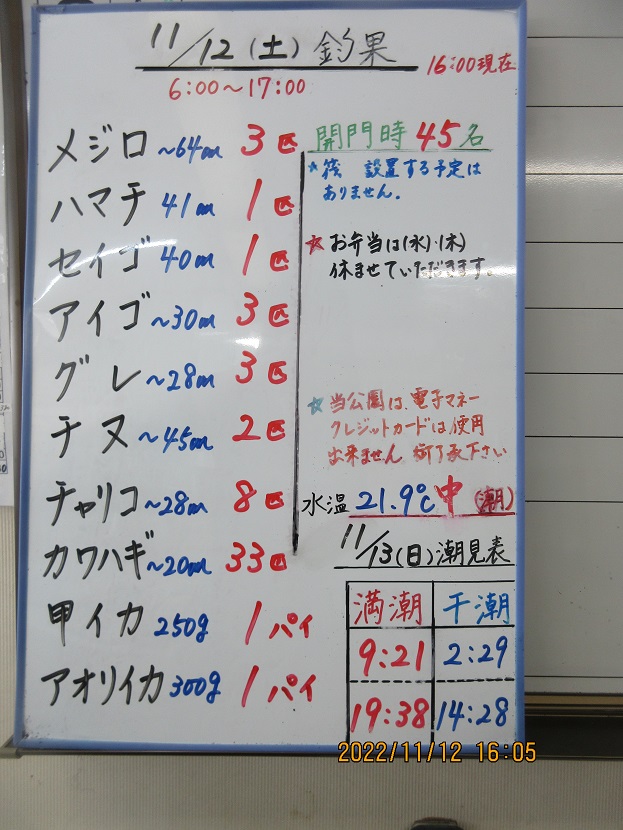 11/12(土)釣果
16:00現在
6:00〜17:00
メジロ 〜64cm 3匹
ハマチ 41cm 1匹
セイゴ 40cm 1匹
アイゴ 〜30cm 3匹
グレ 〜28cm 3匹
チヌ 〜45cm 2匹
チャリコ 〜28cm 8匹
カワハギ 〜20cm 33匹
甲イカ 250g 1パイ
アオリイカ 300g 1パイ
開門時 45名
★筏 設置する予定は
ありません。
★お弁当は(水)・(木)
休ませていただきます。
☆当公園は、電子マネー
クレジットカードは使用
出来ません 御了承下さい
水温 21.9℃ 中(潮)
11/13(日)潮見表
満潮 干潮
9:21 2:29
19:38 14:28
2022/11/12 16:05